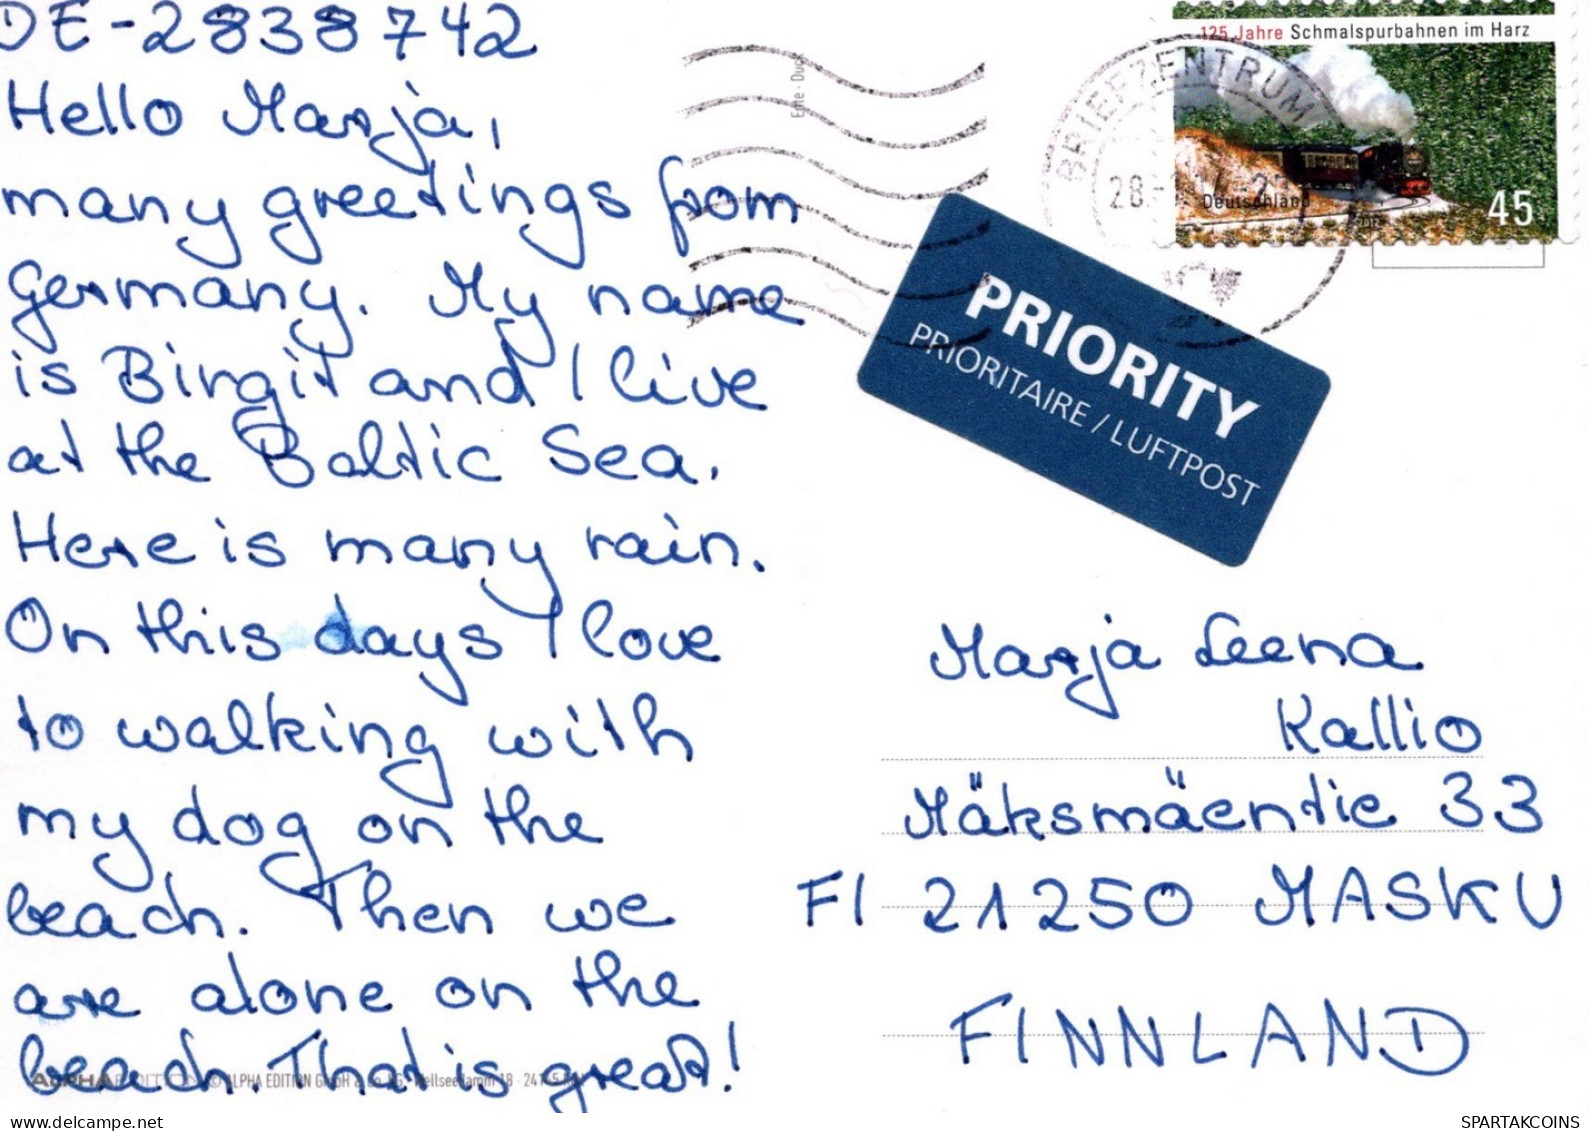 DE-2838742
Hello Marja,
many greetings from
Germany. My name
is Birgit and I live
at the Baltic Sea.
Here is many rain.
On this days I love
to walking with
my dog on the
beach. Then we
are alone on the
beach. That is great!
ALPHA EDITION © ALPHA EDITION GmbH & Co. KG
125 Jahre Schmalspurbahnen im Harz
Deutschland
45
BRIEFZENTRUM
28.
PRIORITY
PRIORITAIRE / LUFTPOST
Marja Leena
Kallio
Mäksmäentie 33
FI 21250 MASKU
FINNLAND
SPARTAKCOINS